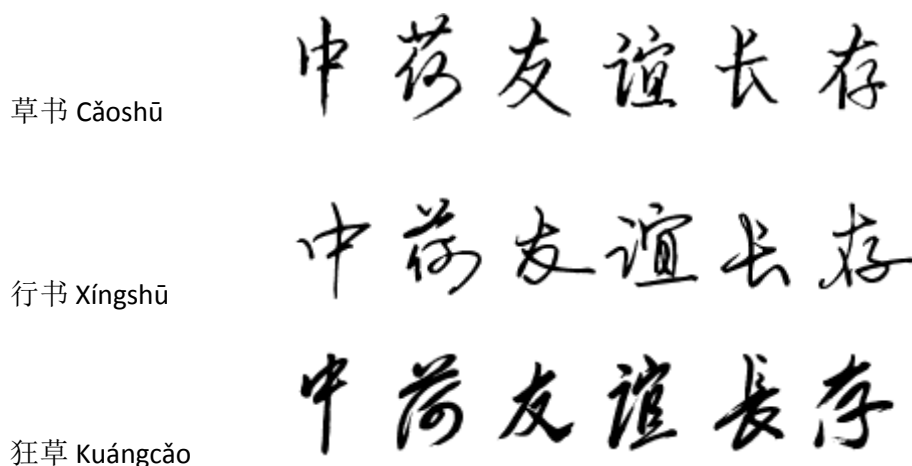 草书 Cǎoshū 中荷友谊长存
行书 Xíngshū 中荷友谊长存
狂草 Kuángcǎo 中荷友谊長存